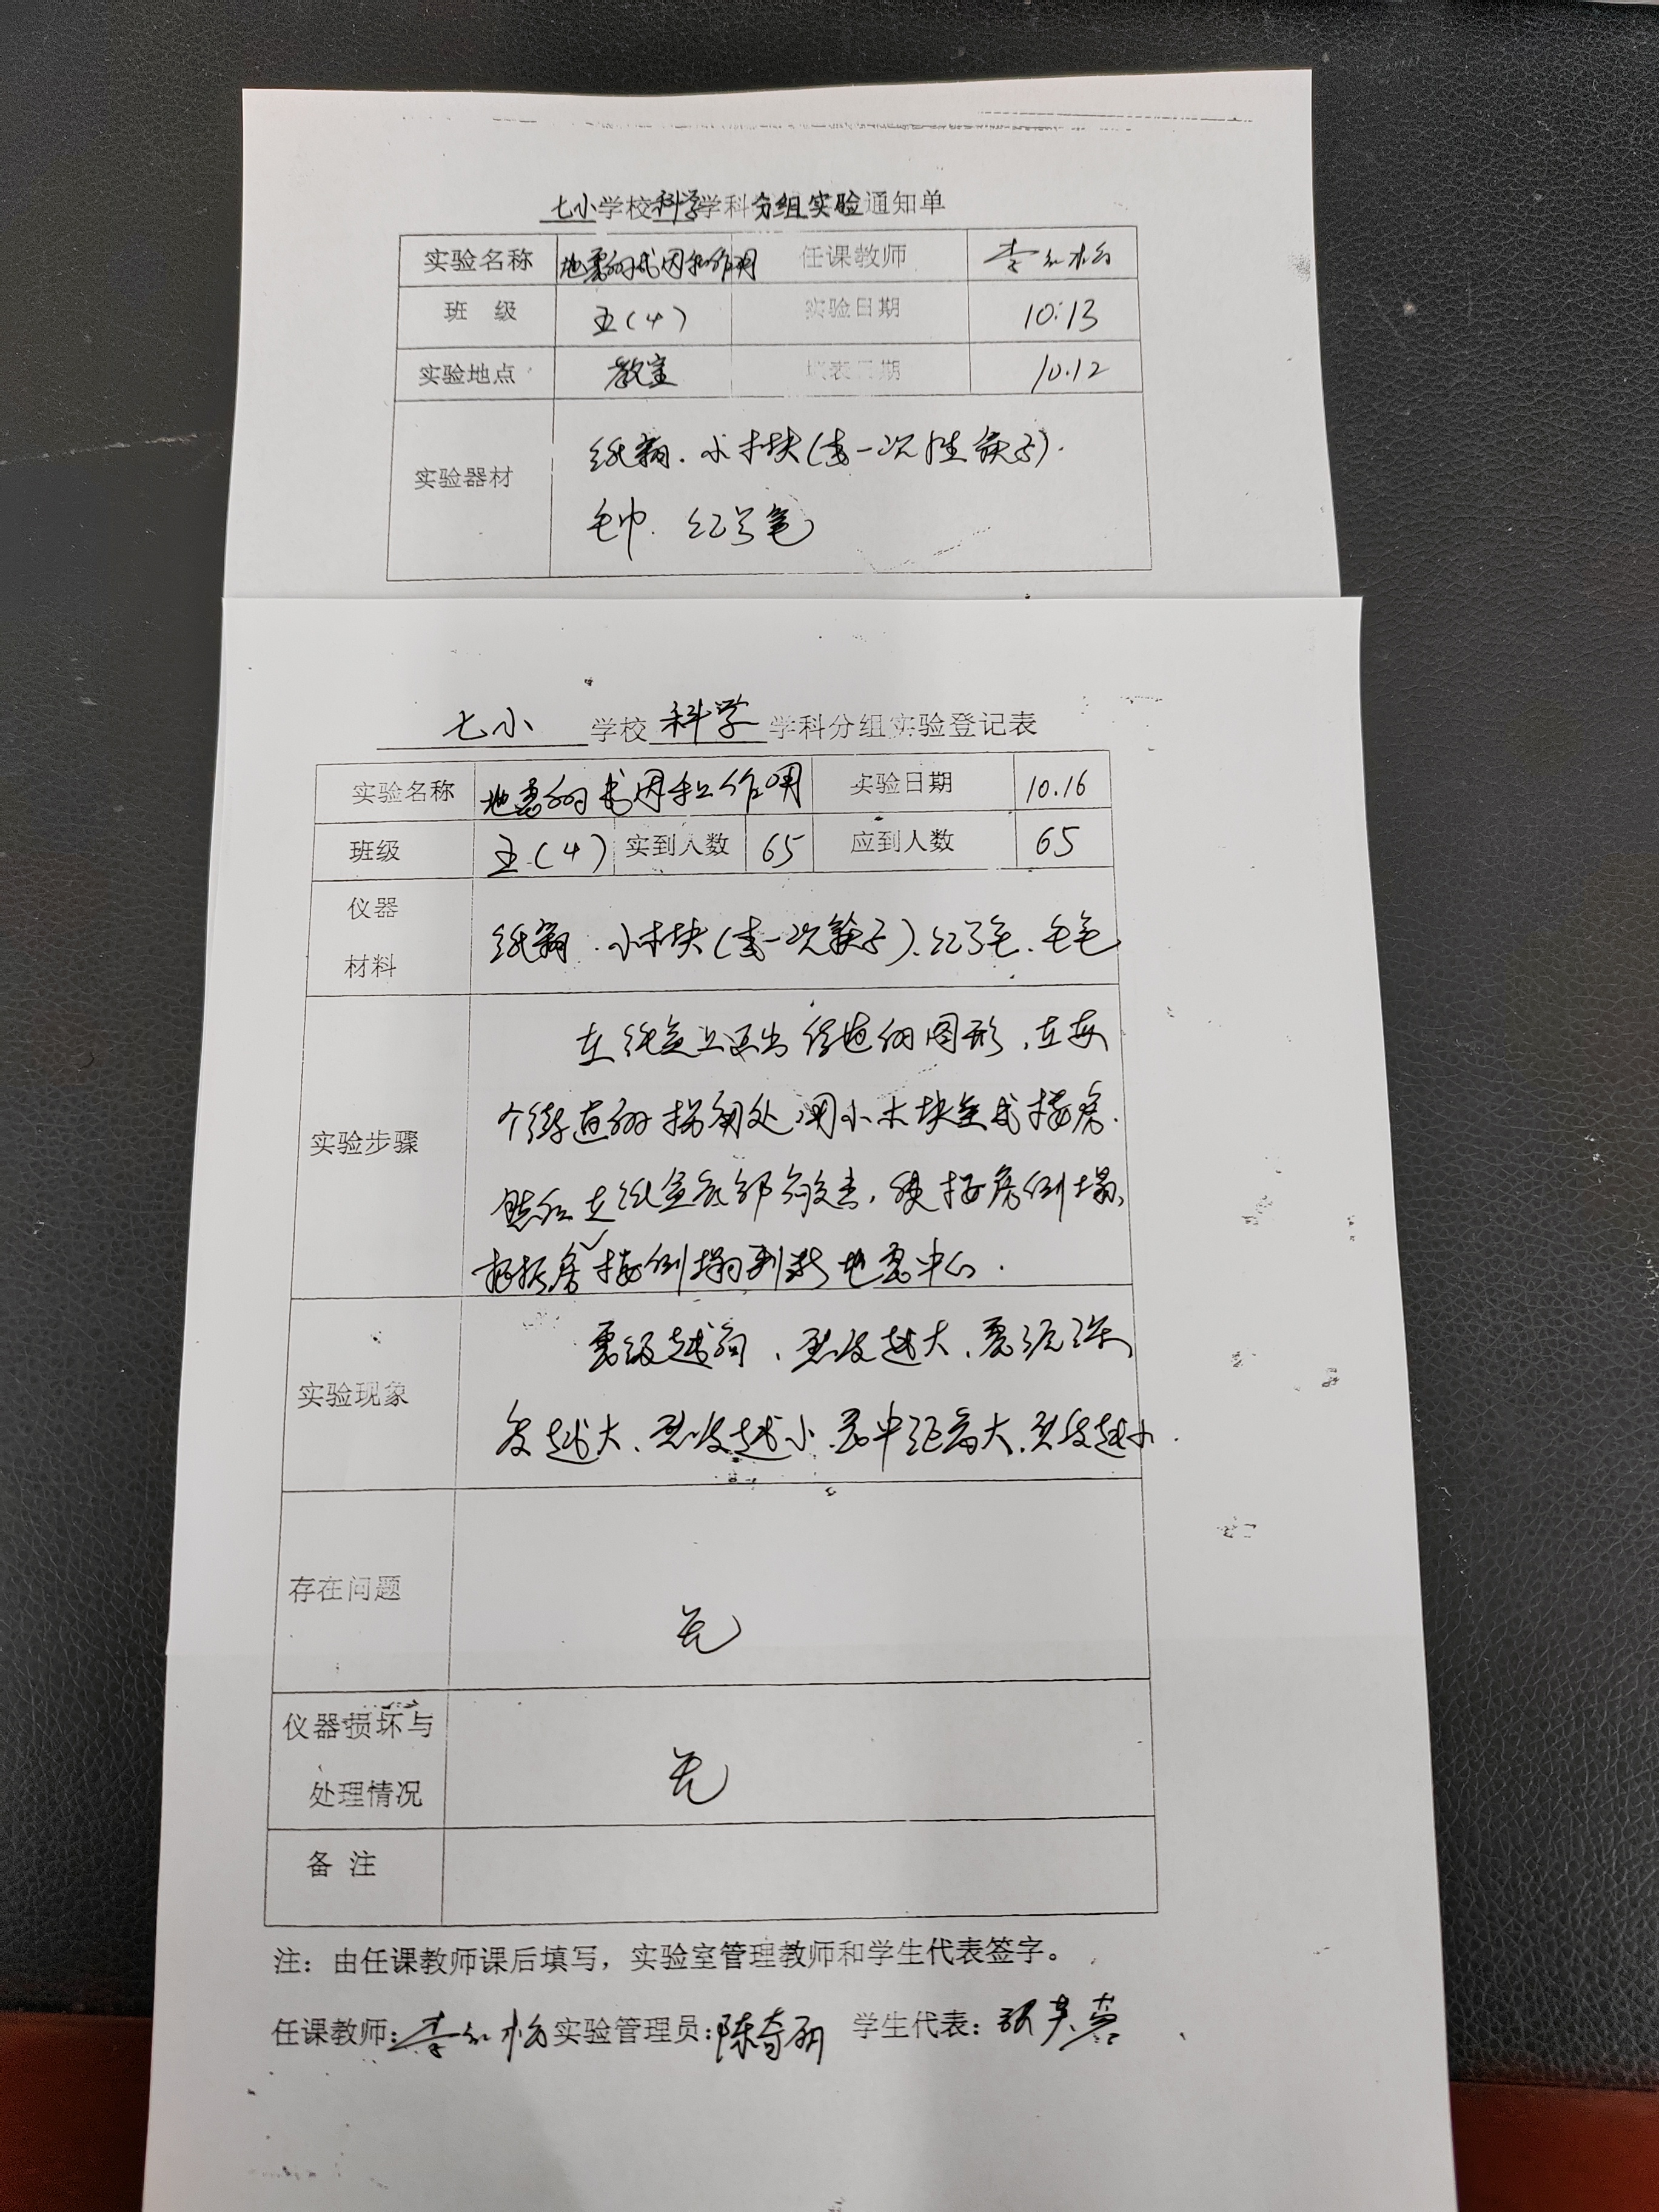 七小学校科学学科分组实验通知单
实验名称 地震的成因和作用 任课教师 李
班 级 五(4) 实验日期 10.13
实验地点 教室 填表日期 10.12
实验器材 小木块(或一次性筷子).
毛巾. 记号笔
七小 学校 科学 学科分组实验登记表
实验名称 地震的成因和作用 实验日期 10.16
班级 五(4) 实到人数 65 应到人数 65
仪器
材料
小木块(或一次筷子)、
实验步骤
在纸盒上画出街道的图形,在每
个街道的拐角处用小木块垒成楼房.
然后在纸盒底部敲击,使楼房倒塌,
根据房楼倒塌判断地震中心.
实验现象
震级越高、烈度越大、震源深
度越大、烈度越小、震中距离大、烈度越小.
存在问题
无
仪器损坏与
处理情况
无
备 注
注：由任课教师课后填写，实验室管理教师和学生代表签字。
任课教师: 李 实验管理员: 陈 学生代表: